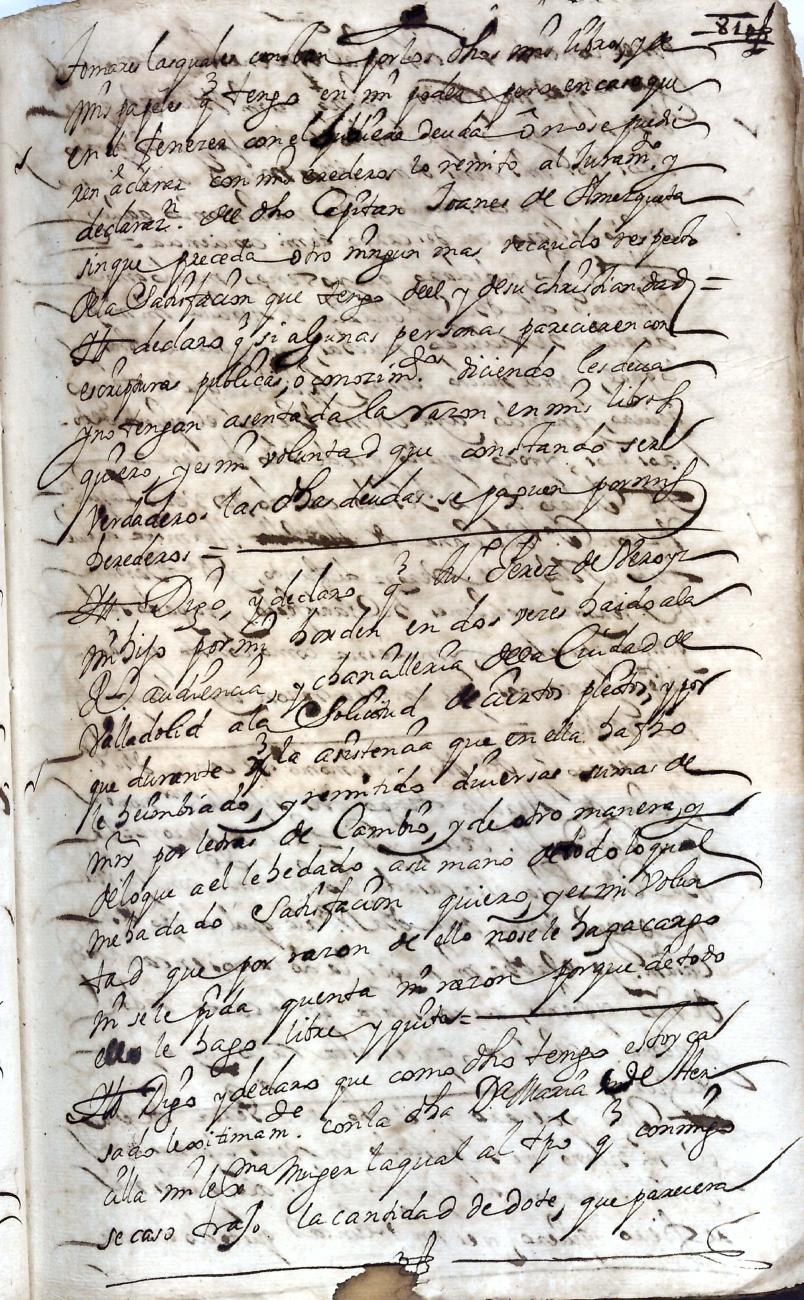 81
tomares las quales constan por los dhos mis libros, y de
mis papeles q tengo en mi poder pero en caso que
en el fenezer con el hubiere deuda o no se pudie
ren aclarar con mis erederos lo remito al Juram.to y
declaraz.n del dho Capitan Joanes de Amezqueta
sin que preceda otro ningun mas recaudo respecto
de la Satisfacion que tengo del y de su christiandad =
Itt declaro q si algunas personas parecieren con
escripturas publicas, o conozim.tos diciendo les deva
y no tengan asentada la razon en mis libros
quiero, y es mi voluntad que constando ser
verdaderos las dhas deudas se paguen por mis
herederos =
Itt Digo, y declaro q Perez de
mi hijo por mi horden en dos vezes ha ido a la
R.l audiencia, y chancilleria de la Ciudad de
Valladolid a la Solicitud de ciertos pleitos, y por
que durante la asistencia que en ella ha hecho
le he imbiado, y remitido diversas sumas de
mrs por letras de Cambio, y de otro manera, y
de lo que a el le he dado a su mano de todo lo qual
me ha dado Satisfacion quiero, y es mi Volun
tad que por razon de ello no se le haga cargo
ni se le pida quenta ni razon porque de todo
ello le hago libre y quito =
Itt Digo y declaro que como dho tengo estoy ca
sado legitimam.te con la dha D.a Maria de Her
cilla mi lex.ma Muger la qual al tpo q conmigo
se caso trajo la cantidad de dote, que parecera